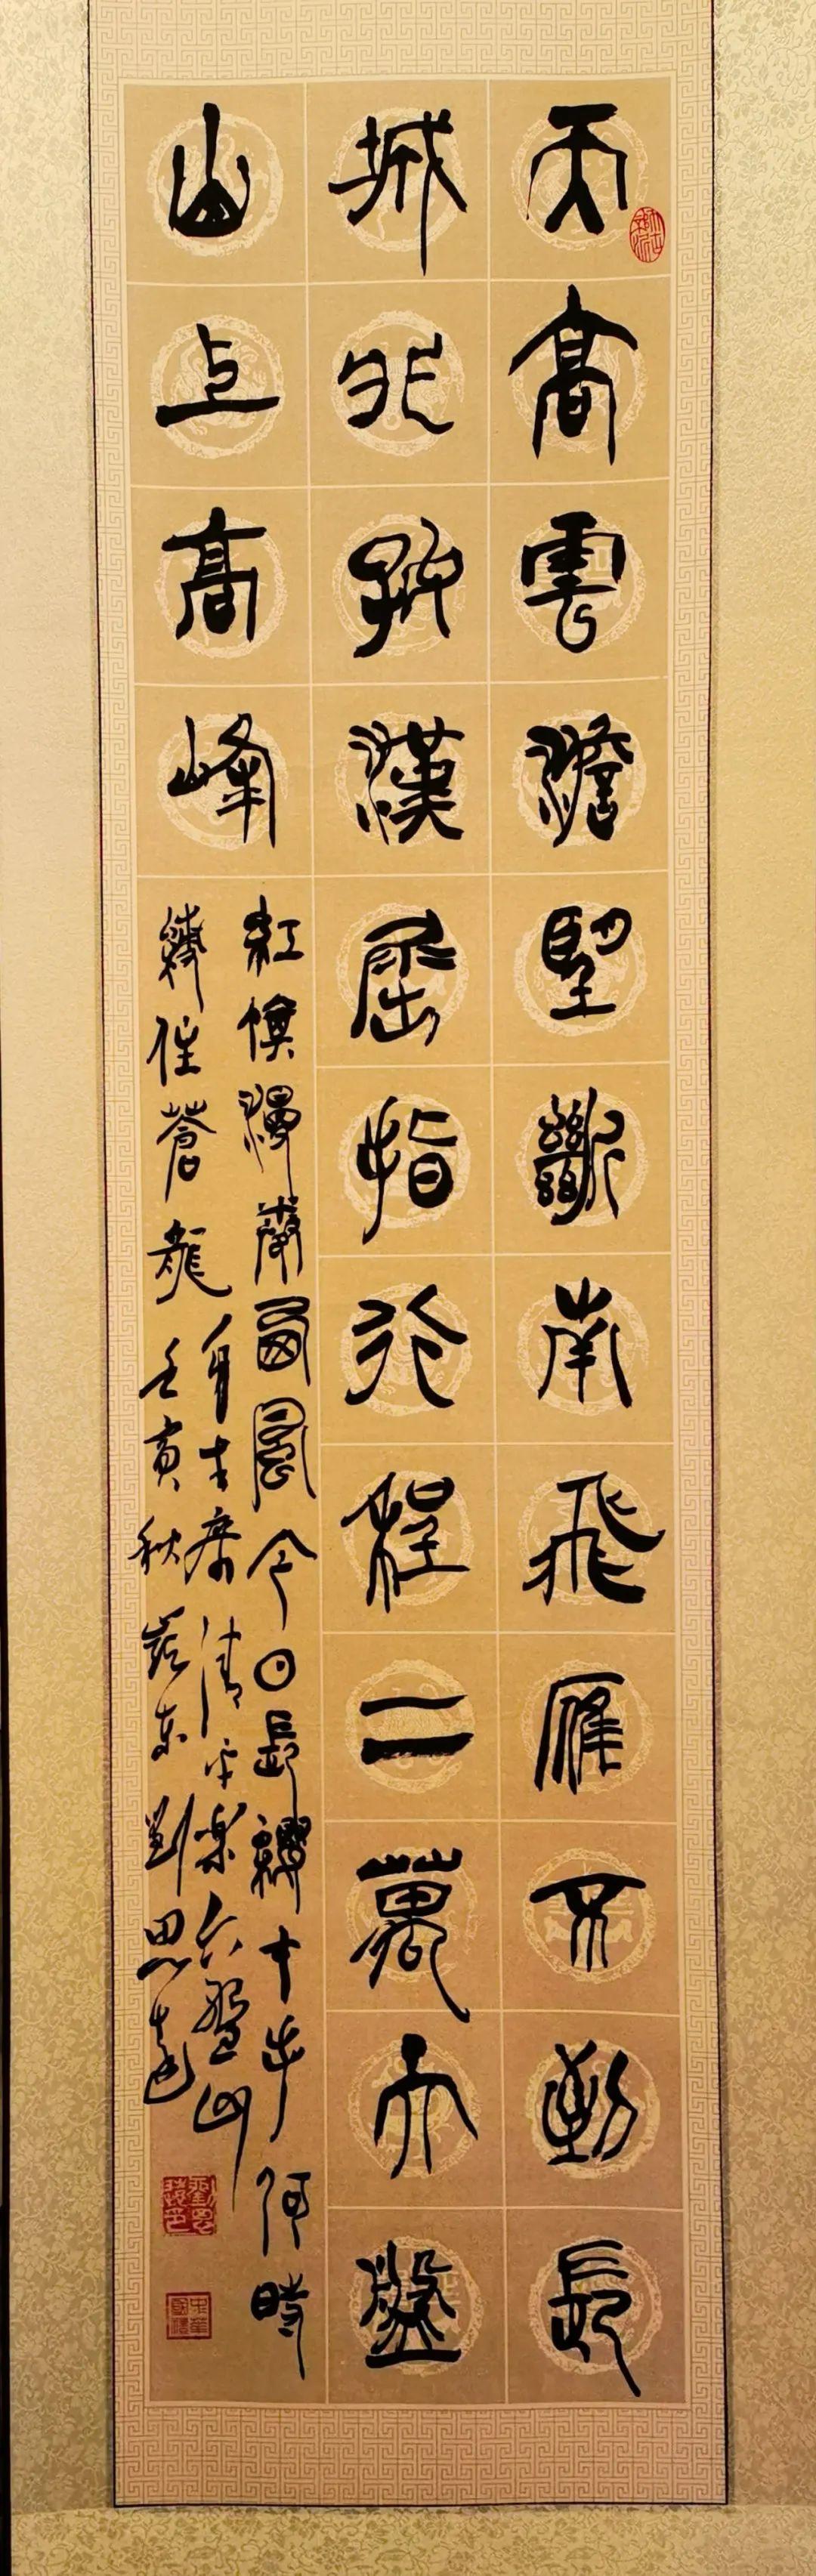 天高雲澹望斷南飛雁不到長
城非好漢屈指行程二萬六盤
山上高峰
紅旗漫卷西風今日長纓在手何時
縛住蒼龍
毛主席清平樂六盤山
壬寅秋東劉思達